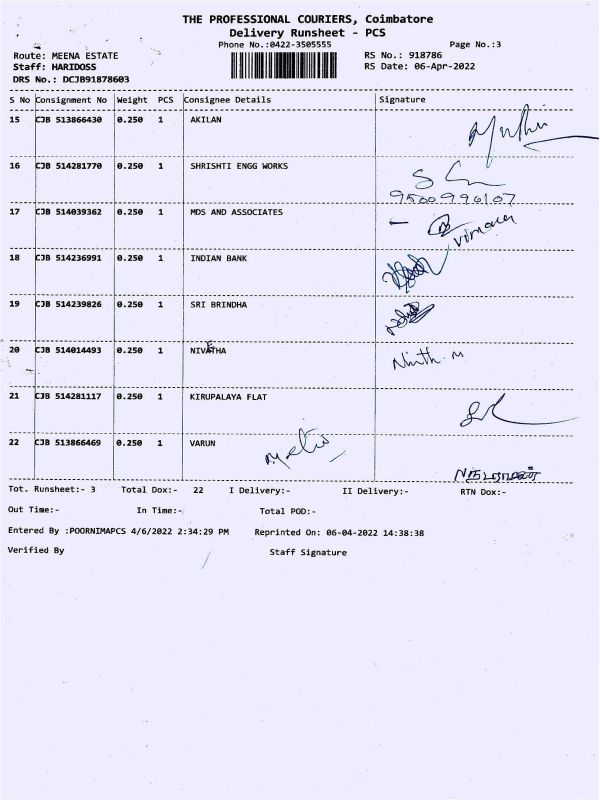 THE PROFESSIONAL COURIERS, Coimbatore
Delivery Runsheet - PCS
Phone No.:0422-3505555 Page No.:3
Route: MEENA ESTATE RS No.: 918786
Staff: HARIDOSS RS Date: 06-Apr-2022
DRS No.: DCJB91878603
S No Consignment No Weight PCS Consignee Details Signature
15 CJB 513866430 0.250 1 AKILAN
16 CJB 514281770 0.250 1 SHRISHTI ENGG WORKS
17 CJB 514039362 0.250 1 MDS AND ASSOCIATES
18 CJB 514236991 0.250 1 INDIAN BANK
19 CJB 514239826 0.250 1 SRI BRINDHA
20 CJB 514014493 0.250 1 NIVETHA
21 CJB 514281117 0.250 1 KIRUPALAYA FLAT
22 CJB 513866469 0.250 1 VARUN
Tot. Runsheet:- 3 Total Dox:- 22 I Delivery:- II Delivery:- RTN Dox:-
Out Time:- In Time:- Total POD:-
Entered By :POORNIMAPCS 4/6/2022 2:34:29 PM Reprinted On: 06-04-2022 14:38:38
Verified By Staff Signature